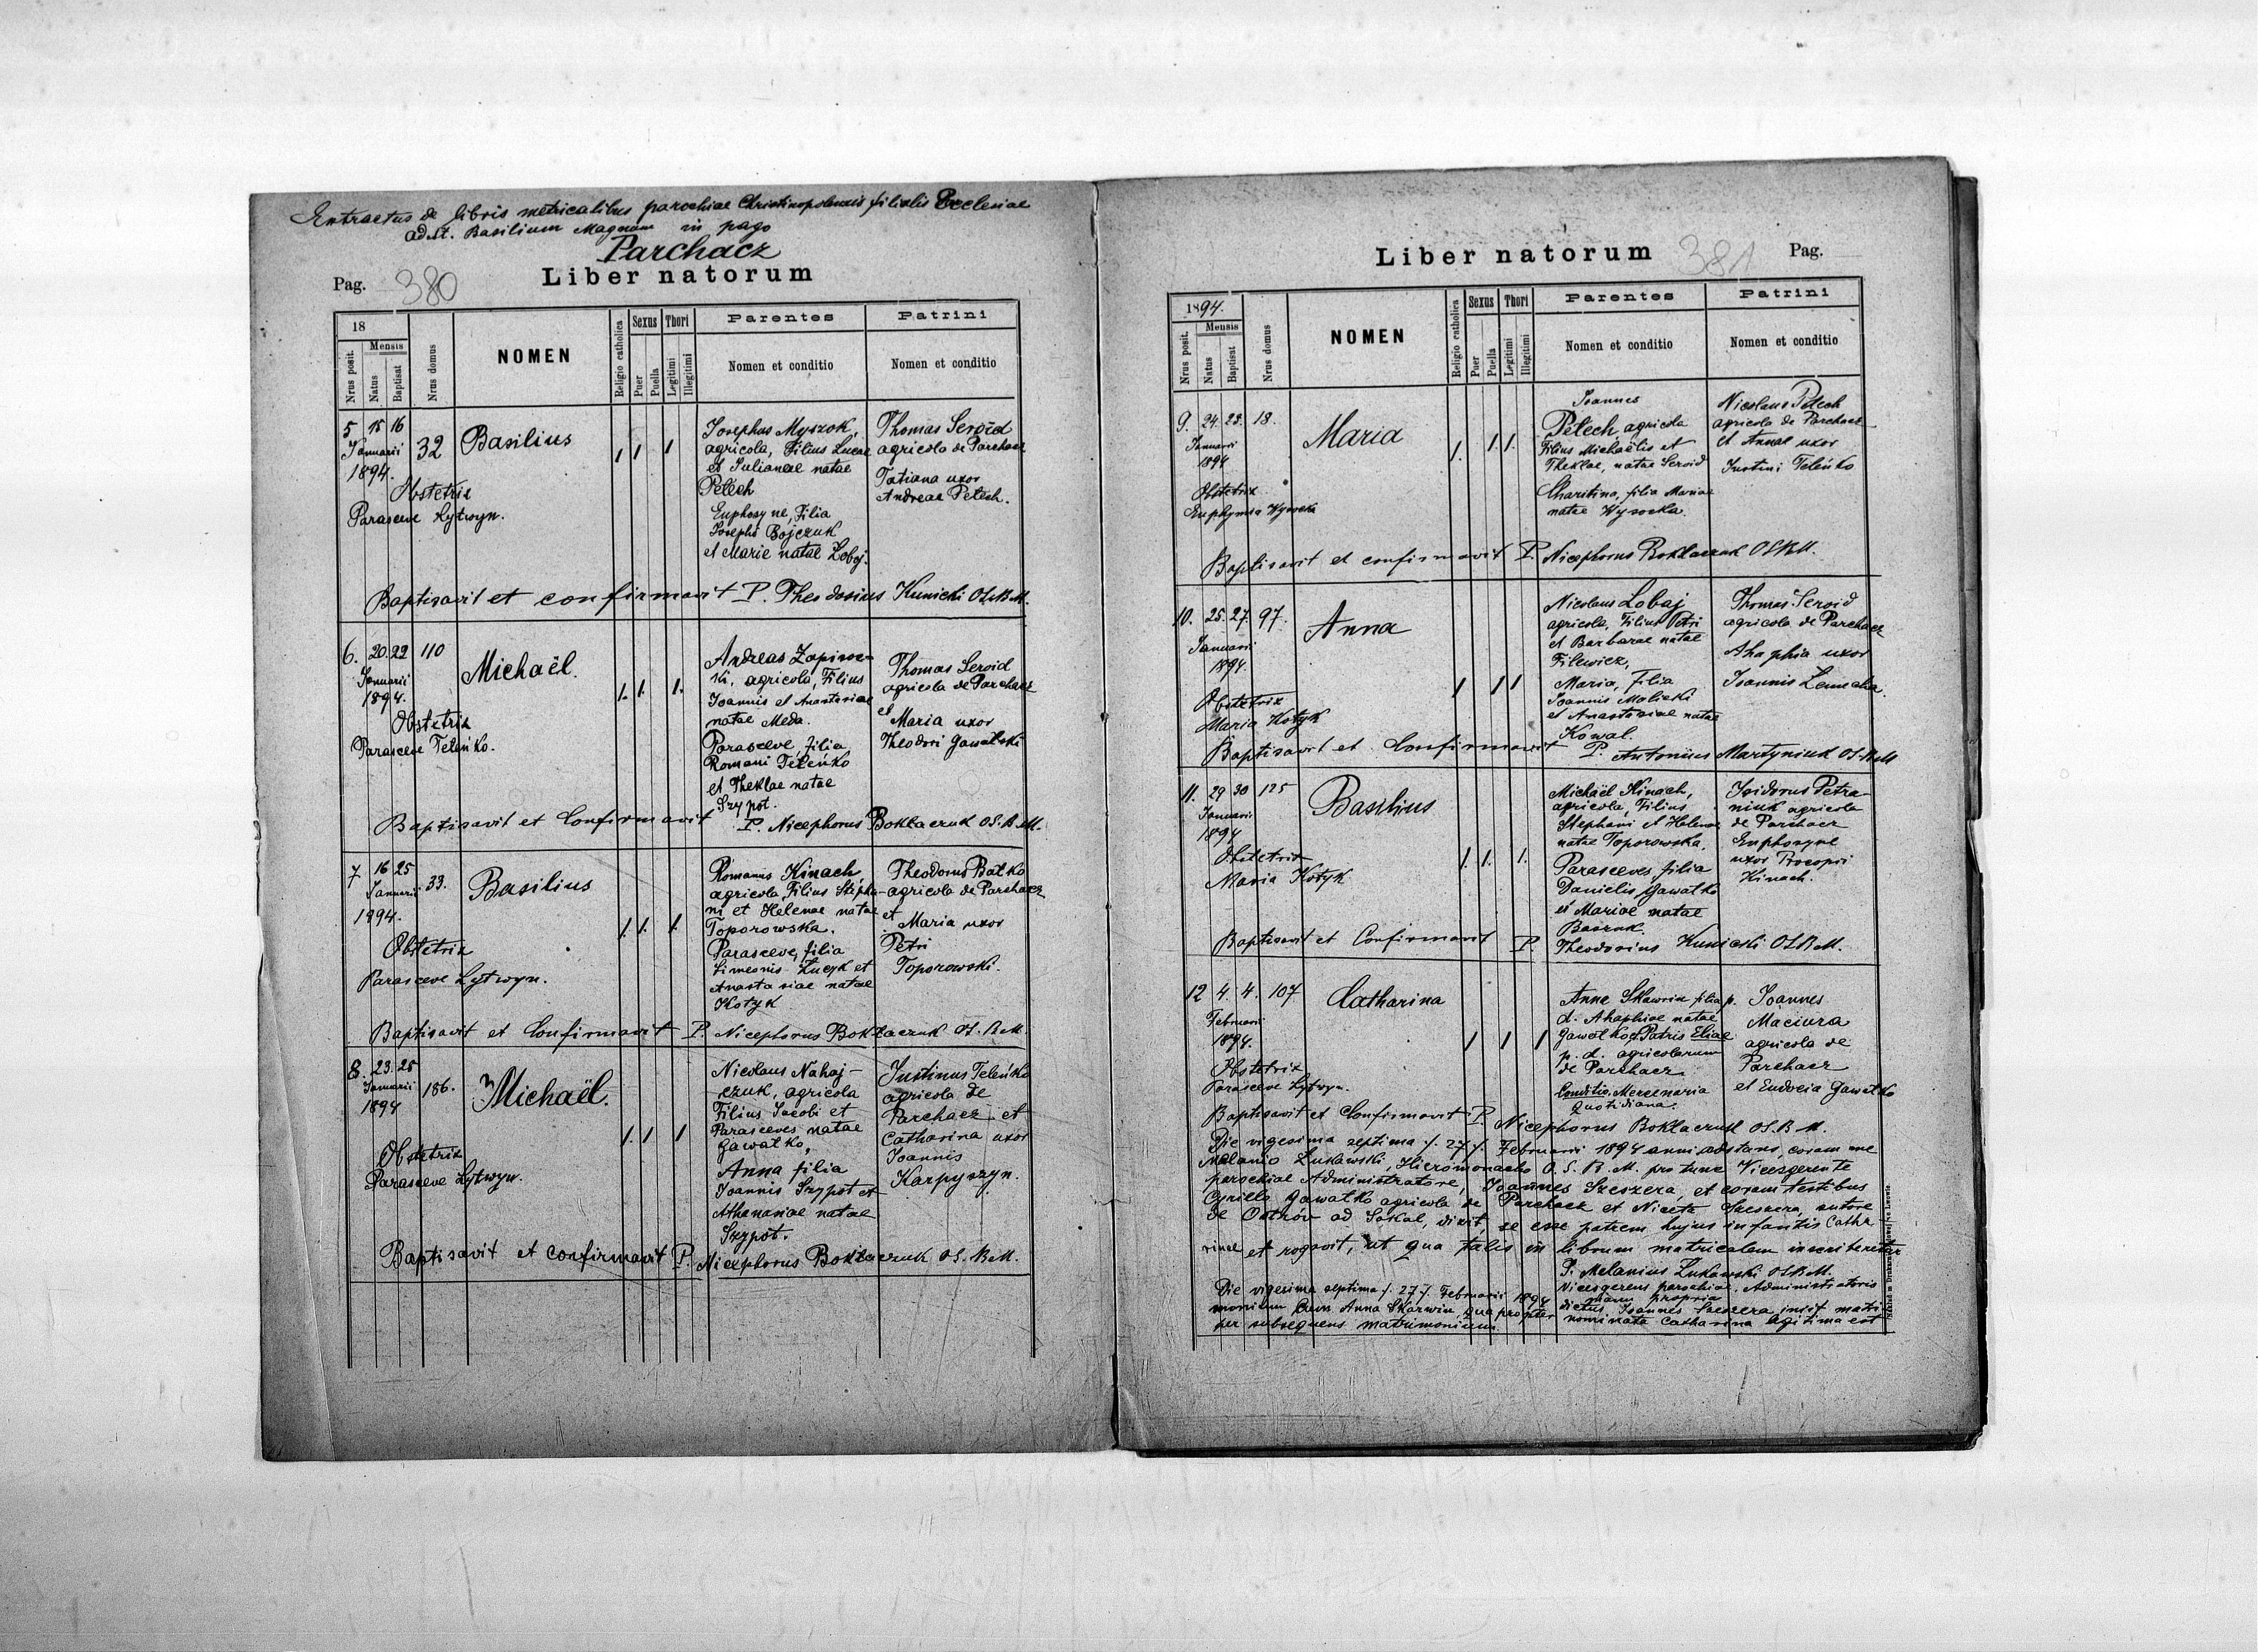 Extractus de libris metricalibus parochiae Christinopolensis filialis Ecclesiae
ad St. Basilium Magnum in pago
Parchacz
Pag. 380 Liber natorum
18
Nrus posit.
Mensis
Natus
Baptisat
Nrus domus
NOMEN
Religio catholica
Sexus
Puer
Puella
Thori
Legitimi
Illegitimi
Parentes
Nomen et conditio
Patrini
Nomen et conditio
5 15 16
Januarii
1894.
32
Basilius
1 1 1
Obstetrix
Parasceve Lytwyn.
Josephus Myszok,
agricola, Filius Lucae
et Julianae natae
Petech
Euphosyne, Filia
Josephi Bojczuk
et Marie natae Łobaj.
Thomas Seroid
agricola de Parchacz
Tatiana uxor
Andreae Petech.
Baptisavit et confirmavit P. Theodosius Kunicki OSBM.
6. 20. 22 110
Januarii
1894.
Michaël.
1. 1. 1.
Obstetrix
Parasceve Teleńko.
Andreas Zapisoc-
ki, agricola, Filius
Joannis et Anastasiae
natae Meda.
Parasceve, filia
Romani Teleńko
et Theklae natae
Szypot.
Thomas Seroid
agricola de Parchacz
et
Maria uxor
Theodori Gawałski
Baptisavit et Confirmavit P. Nicephorus Bokłaczuk O.S.B.M.
7 16 25
Januarii
1894.
33.
Basilius
1. 1. 1.
Obstetrix
Parasceve Lytwyn.
Romanus Kinach
agricola, Filius Stepha-
ni et Helenae natae
Toporowska.
Parasceve, filia
Simeonis Łucyk et
Anastasiae natae
Kotyk
Theodorus Bałko
agricola de Parchacz
et
Maria uxor
Petri
Toporowski.
Baptisavit et Confirmavit P. Nicephorus Bokłaczuk O.S.B.M.
8. 23. 25
Januarii
1894
186.
Michaël.
1. 1 1
Obstetrix
Parasceve Lytwyn.
Nicolaus Nahaj-
czuk, agricola
Filius Jacobi et
Parasceves natae
Gawałko,
Anna filia
Joannis Szypot et
Athanasiae natae
Szypot.
Justinus Teleńko
agricola de
Parchacz et
Catharina uxor
Joannis
Karpyszyn.
Baptisavit et confirmavit P. Nicephorus Bokłaczuk O.S.B.M.
Liber natorum 381 Pag.
1894.
Nrus posit.
Mensis
Natus
Baptisat
Nrus domus
NOMEN
Religio catholica
Sexus
Puer
Puella
Thori
Legitimi
Illegitimi
Parentes
Nomen et conditio
Patrini
Nomen et conditio
9. 24. 25. 18.
Januarii
1894
Maria
1. 1. 1.
Obstetrix
Euphymia Wysocka
Joannes
Petech agricola
Filius Michaëlis et
Theklae, natae Seroid
Charitina, filia Mariae
natae Wysocka.
Nicolaus Petech
agricola de Parchacz
et Annae uxor
Justini Teleńko
Baptisavit et confirmavit P. Nicephorus Bokłaczuk OSBM.
10. 25. 27. 97.
Januarii
1894.
Anna
1 1 1
Obstetrix
Maria Kotyk
Nicolaus Łobaj
agricola, Filius Petri
et Barbarae natae
Filewicz,
Maria, filia
Joannis Molicki
et Anastasiae natae
Kowal.
Thomas Seroid
agricola de Parchacz
Ahaphia uxor
Joannis Zemecha.
Baptisavit et Confirmavit P. Antonius Martyniuk O.S.B.M
11. 29 30 125
Januarii
1894
Basilius
1. 1. 1.
Obstetrix
Maria Kotyk
Michaël Kinach,
agricola, Filius
Stephani et Helenae
natae Toporowska.
Parasceves, filia
Danielis Gawałko
et Mariae natae
Isidorus Petra-
niuk agricola
de Parchacz
Euphosyne
uxor Procopii
Kinach.
Baptisavit et Confirmavit P. Theodosius Kunicki OSBM.
12 4. 4. 107
Februarii
1894.
Catharina
1 1 1
Obstetrix
Parasceve Lytwyn.
Anne Skawrin filia p.
d. Ahaphiae natae
Gawałko, et Patris Eliae
p. d. agricolarum
de Parchacz.
Conditio. Mercenaria
quotidiana.
Joannes
Maciura
agricola de
Parchacz
et Eudocia Gawałko
Baptisavit et Confirmavit P. Nicephorus Bokłaczuk O.S.B.M.
Die vigesima septima /. 27 /. Februarii 1894 anni adstans, coram me
Melanio Łukawski, Hieromonacho O. S. B. M. pro tunc Vicesgerente
parochiae Administratore, Joannes Szeszera, et coram testibus
Cyrillo Gawałko agricola de Parchacz et Niceta Szeszera, sutore
de Ostrów ad Sokal, dixit, se esse patrem hujus infantis Catha
rinae et rogavit, ut qua talis in librum matricalem inscriberetur
P. Melanius Łukawski OSBM.
Vicesgerens parochiae. Administratoris
manu propria
Die vigesima septima /. 27 /. Februarii 1894 dictus Joannes Szeszera iniit matri
monium cum Anna Skarwin, qua propter nominata Catharina legitima est
per subsequens matrimonium.